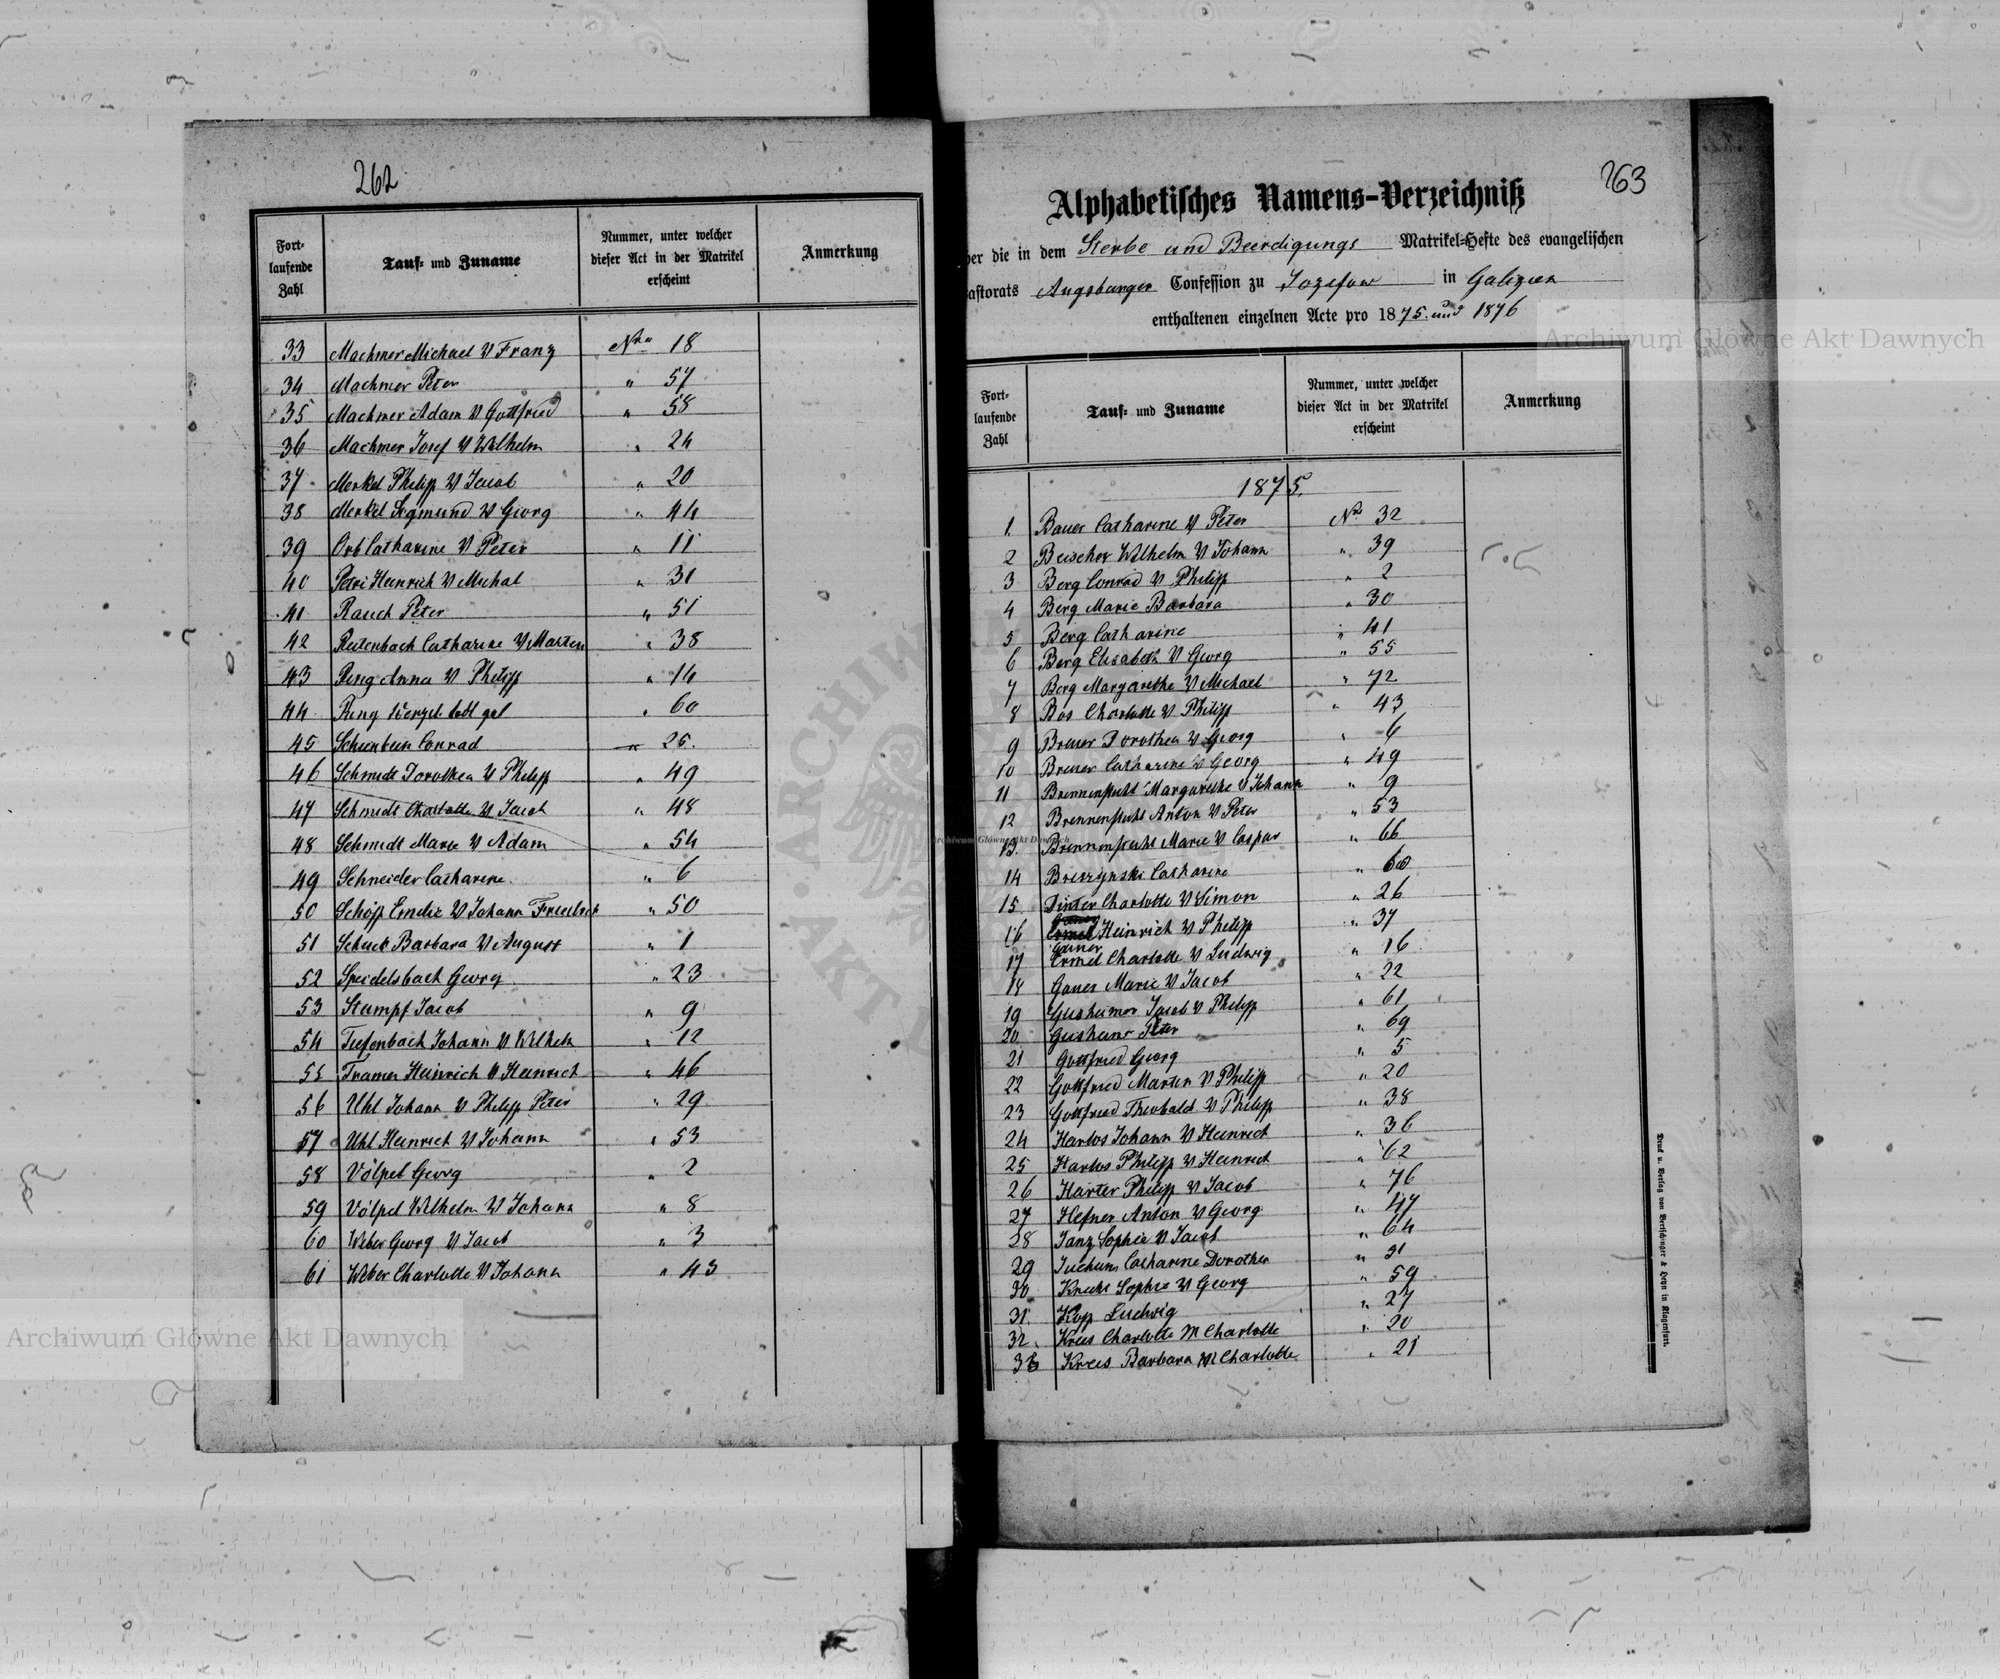 262
Fort-
laufende
Zahl
Tauf- und Zuname
Nummer, unter welcher
dieser Act in der Matrikel
erscheint
Anmerkung
33 Machmer Michael V Franz Nro 18
34 Machmer Peter " 57
35 Machmer Adam V Gottfried " 58
36 Machmer Josef V Wilhelm " 24
37 Merkel Philipp V Jacob " 20
38 Merkel Sigmund V Georg " 44
39 Orb Catharine V Peter " 11
40 Pari Heinrich V Michal " 31
41 Rauch Peter " 51
42 Reitenbach Catharine V Marten " 38
43 Ring Anna V Philipp " 14
44 Ring todt geb " 60
45 Scheenbein Conrad " 25.
46 Schmidt Dorothea V Philipp " 49
47 Schmidt Charlotte V Jacob " 48
48 Schmidt Marie V Adam " 54
49 Schneider Catharine " 6
50 Schöpp Emelie V Johann Friedrich " 50
51 Schuck Barbara V August " 1
52 Speidelsbach Georg " 23
53 Stumpf Jacob " 9
54 Tiefenbach Johann V Wilhelm " 12
55 Tramer Heinrich V Heinrich " 46
56 Uhl Johann V Philipp Peter " 29
57 Uhl Heinrich V Johann " 53
58 Völpel Georg " 2
59 Völpel Wilhelm V Johann " 8
60 Weber Georg V Jacob " 3
61 Weber Charlotte V Johann " 43
263
Alphabetisches Namens-Verzeichniß
ber die in dem Sterbe und Beerdigungs Matrikel-Hefte des evangelischen
astorats Augsburger Confession zu Jozefow in Galizien
enthaltenen einzelnen Acte pro 1875. und 1876
Fort-
laufende
Zahl
Tauf- und Zuname
Nummer, unter welcher
dieser Act in der Matrikel
erscheint
Anmerkung
1875.
1. Bauer Catharine V Peter No 32
2 Beischer Wilhelm V Johann " 39
3 Berg Conrad V Philipp " 2
4 Berg Marie Barbara " 30
5 Berg Catharine " 41
6 Berg Elisabeth V Georg " 55
7 Berg Margarethe V Michael " 72
8 Bos Charlotte V Philipp " 43
9 Breuer Dorothea V Georg " 6
10 Breuer Catharine V Georg " 49
11 Brennenstuhl Margarethe V Johann " 9
12 Brennenstuhl Anton V Peter " 53
13. Brennenstuhl Marie V Caspar " 66
14 Brezynski Catharine " 60
15 Dinter Charlotte V Simon " 26
16 Heinrich V Philipp " 37
17 Ermel Charlotte V Ludwig " 16
18 Ganer Marie V Jacob " 22
19 Geisheimer Jacob V Philipp " 61
20 Peter " 69
21 Gottfried Georg " 5
22 Gottfried Martin V Philipp " 20
23 Gottfried Theobald V Philipp " 38
24 Harlos Johann V Heinrich " 36
25 Harlos Philipp V Heinrich " 62
26 Harter Philipp V Jacob " 76
27 Hefner Anton V Georg " 47
28 Janz Sophie V Jacob " 64
29 Juchum Catharine Dorothea " 31
30 Knecht Sophie V Georg " 59
31. Kopp Ludwig " 27
32. Kreis Charlotte M Charlotte " 20
33 Kreis Barbara M Charlotte " 21
Druck u. Verlag von Bertschinger & Heyn in Klagenfurt.
Archiwum Główne Akt Dawnych
Archiwum Główne Akt Dawnych
Archiwum Główne Akt Dawnych